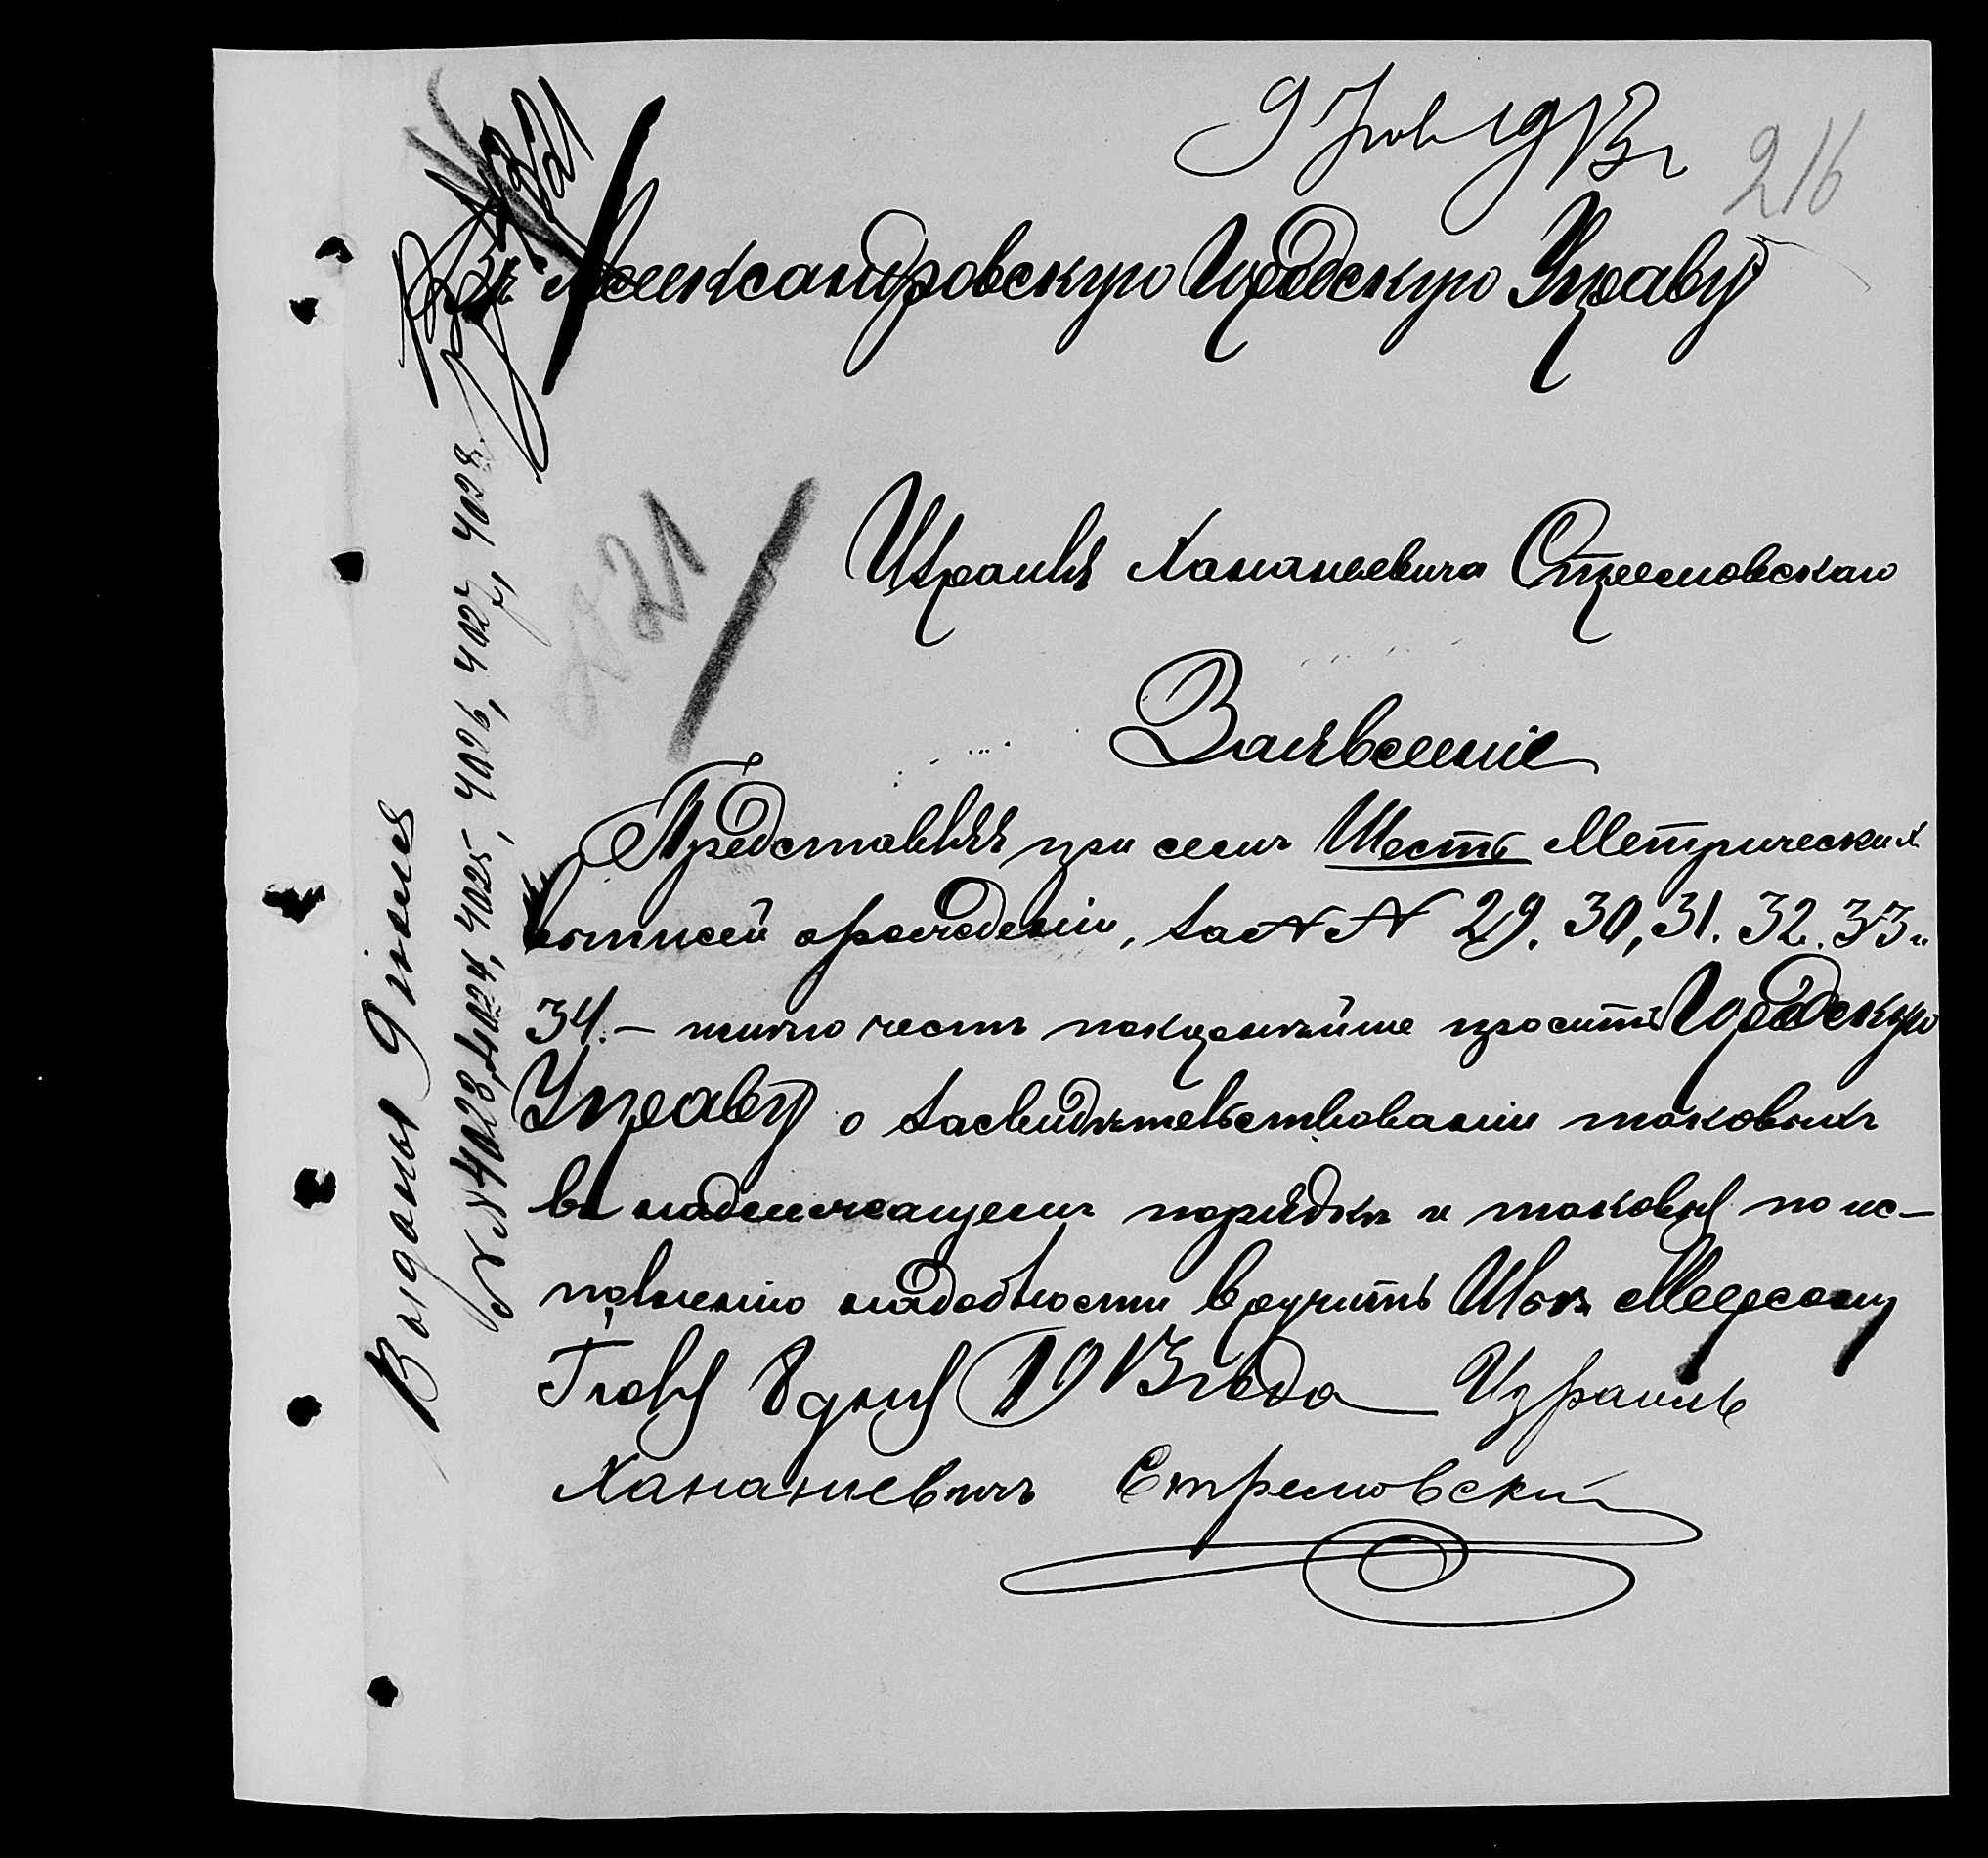 9 Іюля 1913 г
216
Въ Александровскую Городскую Управу
Израиля Хананьевича Стремовскаго
821
Заявленіе
Представляя при семъ Шесть Метрическихъ
выписей о рожденіи, за № № 29. 30, 31. 32. 33 и
34. — имѣю честь покорнѣйше просить Городскую
Управу о засвидѣтельствованіи таковыхъ
въ надлежащемъ порядкѣ и таковыя по ис-
полненію надобности вручить Меерсону
Іюля 8 дня 1913 года Израиль
Хананьевичъ Стремовскій
Выданы 9 іюля
№№ 4023, 4024, 4025, 4026, 4027, 4028